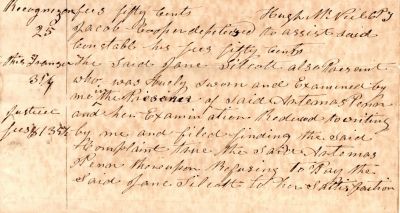 Recognizan fees fifty Cents Hugh McNeil C P J
25 Jacob Cooper deputized to assist said
Constable his fees fifty Cents
this Transcr The said Jane Silcott also Present
31¼ who was Duely Sworn and Examined by
me the Prisoner of Said Artemas Penn
Justice and her Examination Reduced to writing
fees $1 35½ by me and filed finding the Said
Complaint true the Said Artemas
Penn thereupon Refusing to Pay the
Said Jane Silcott to her Sattisfaction